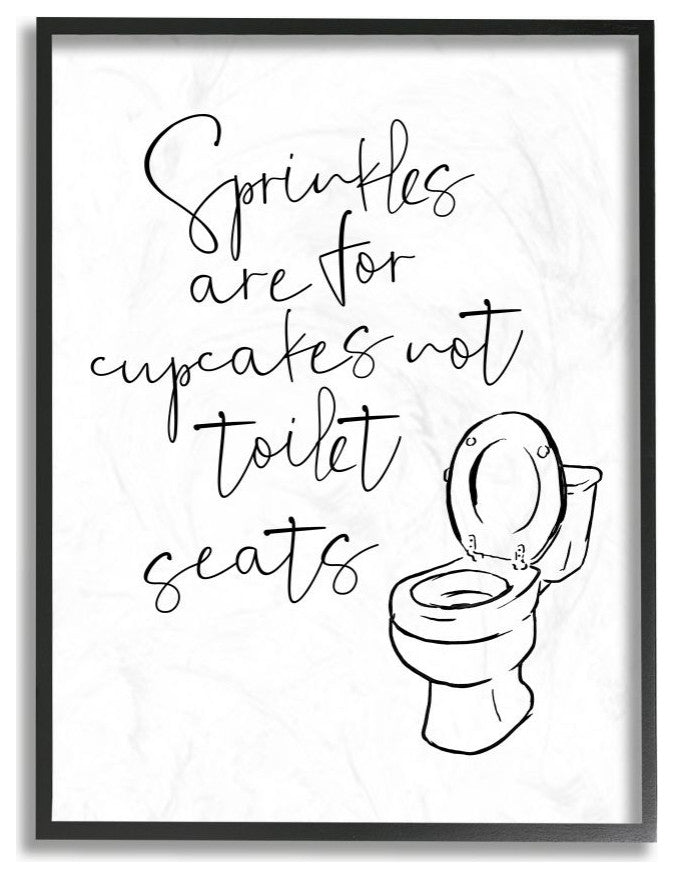 Sprinkles
are for
cupcakes not
toilet
seats